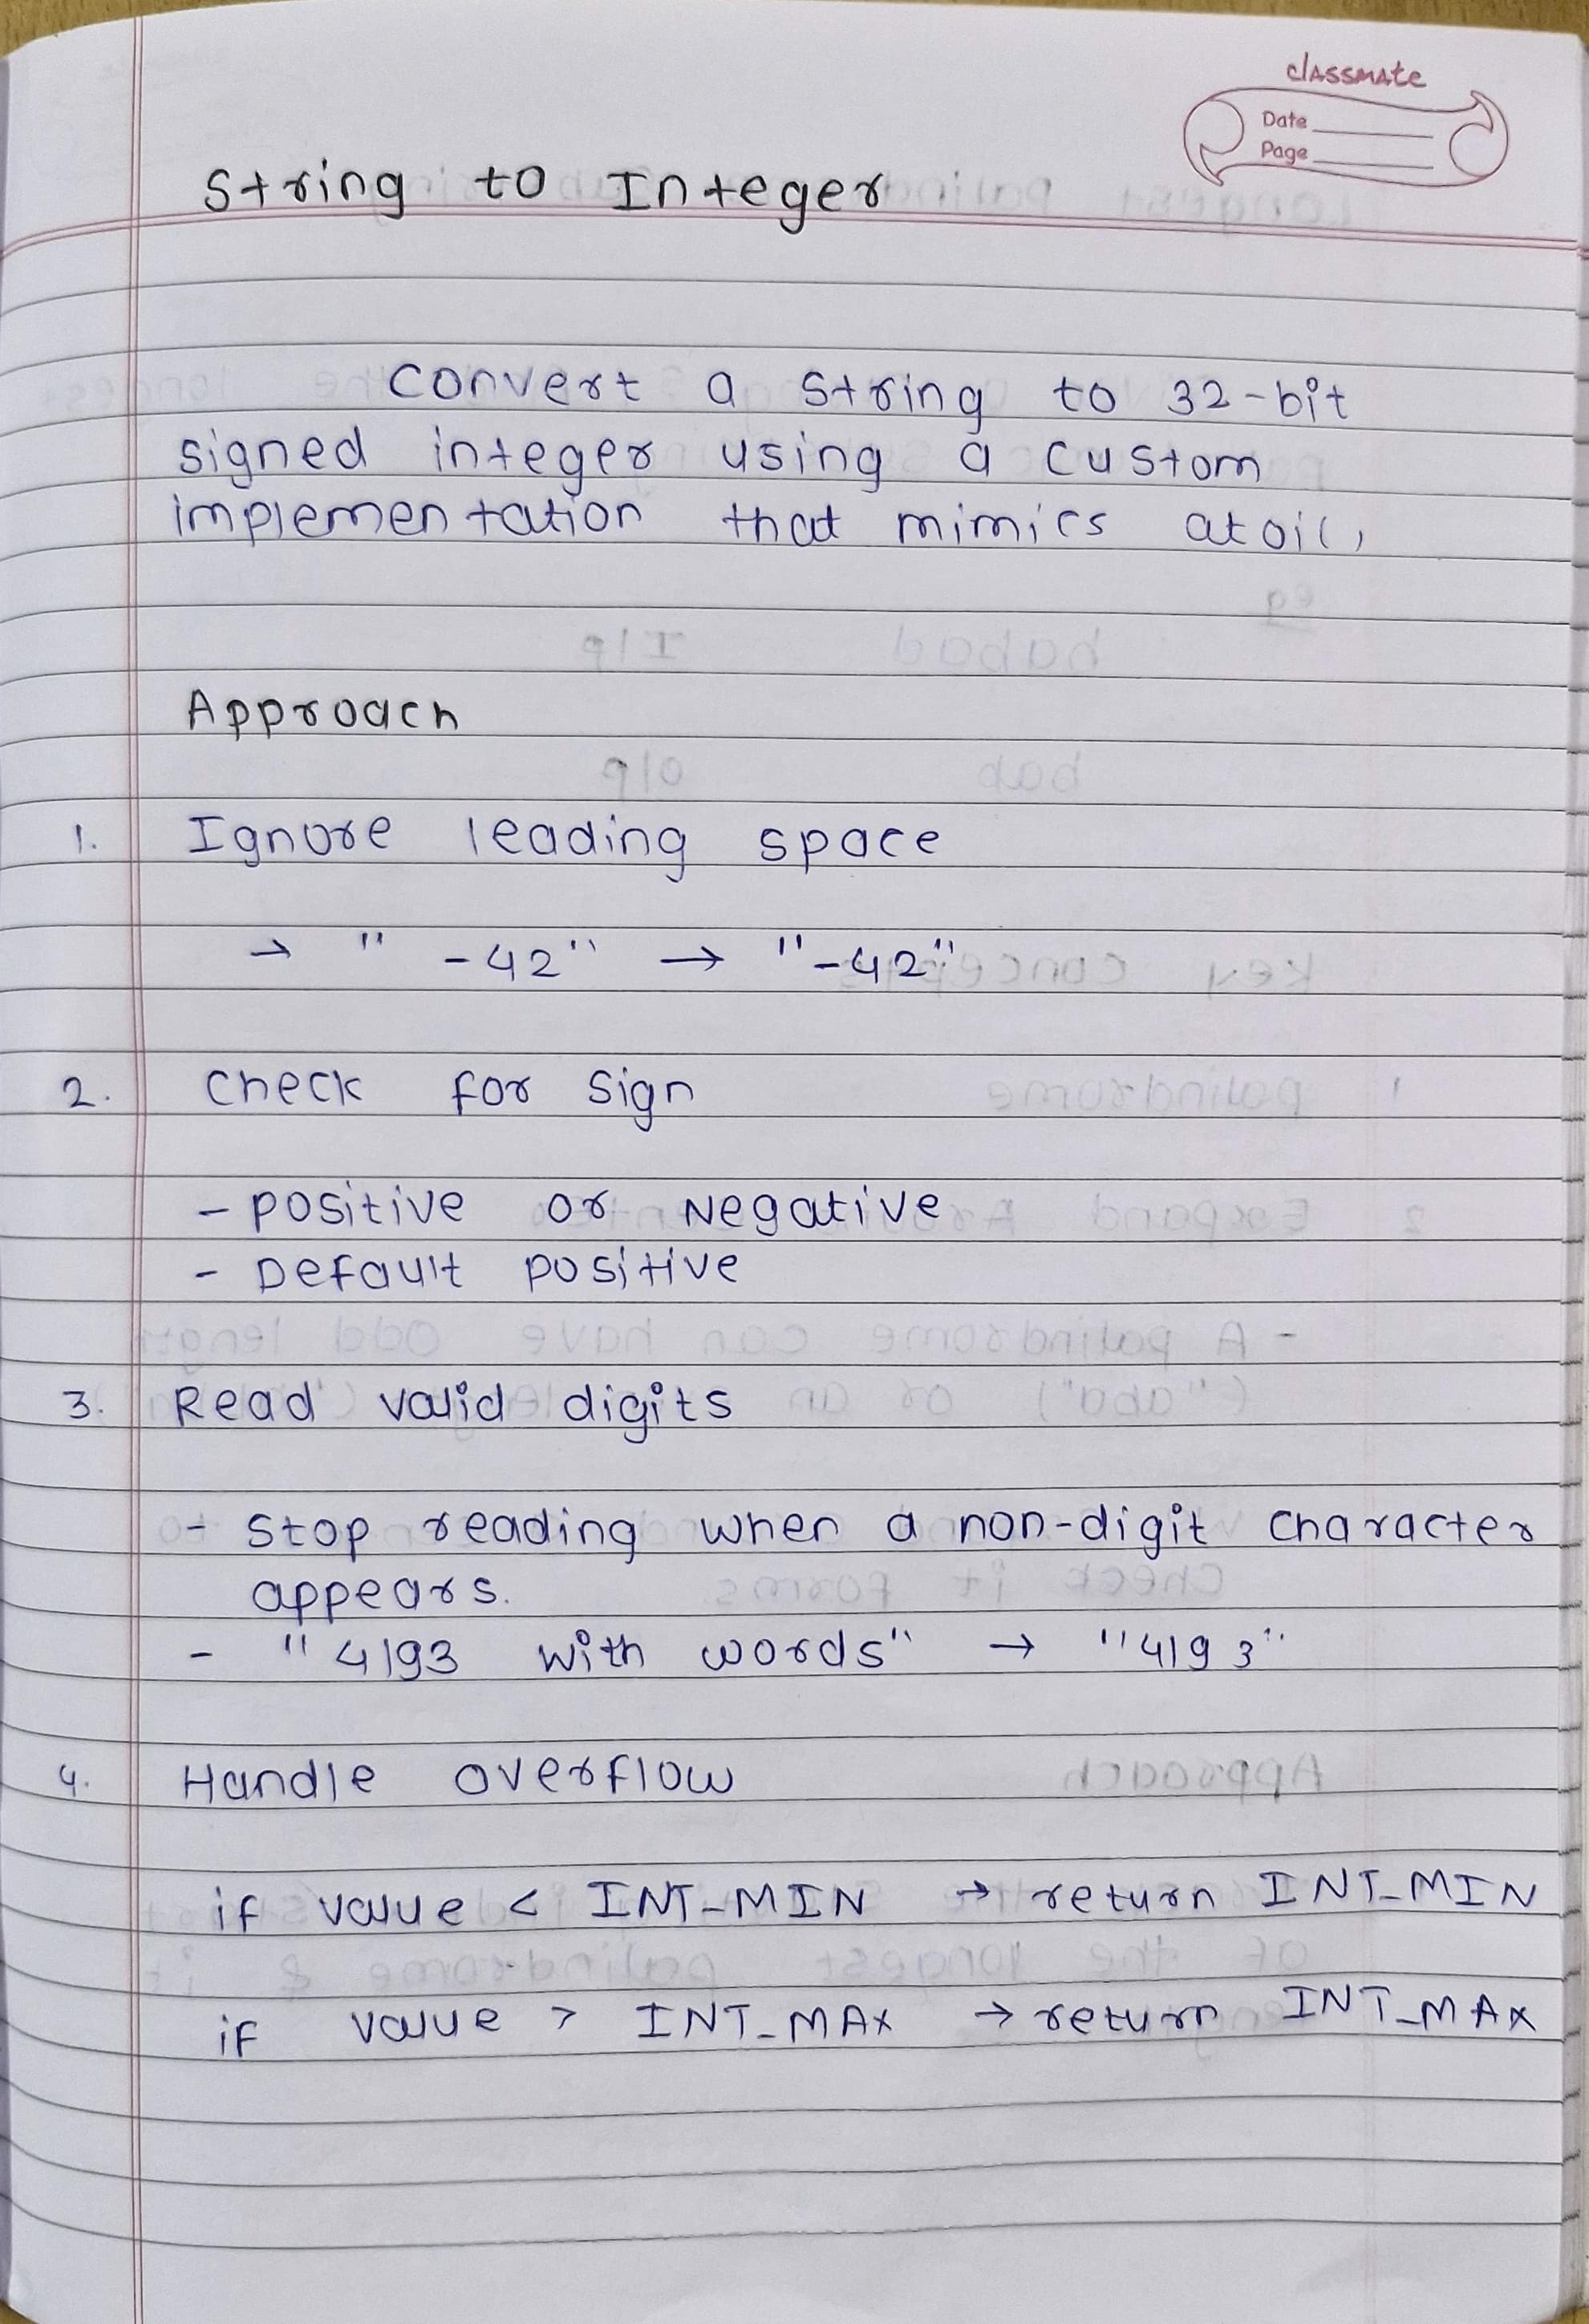 classmate
Date
Page
String to Integer
Convert a string to 32-bit
signed integer using a custom
implementation that mimics atoi()
Approach
1. Ignore leading space
→ " -42" → "-42"
2. Check for sign
- positive or Negative
- Default positive
3. Read valid digits
- Stop reading when a non-digit character
appears.
- "4193 with words" → "4193"
4. Handle overflow
if value < INT_MIN → return INT_MIN
if value > INT_MAX → return INT_MAX